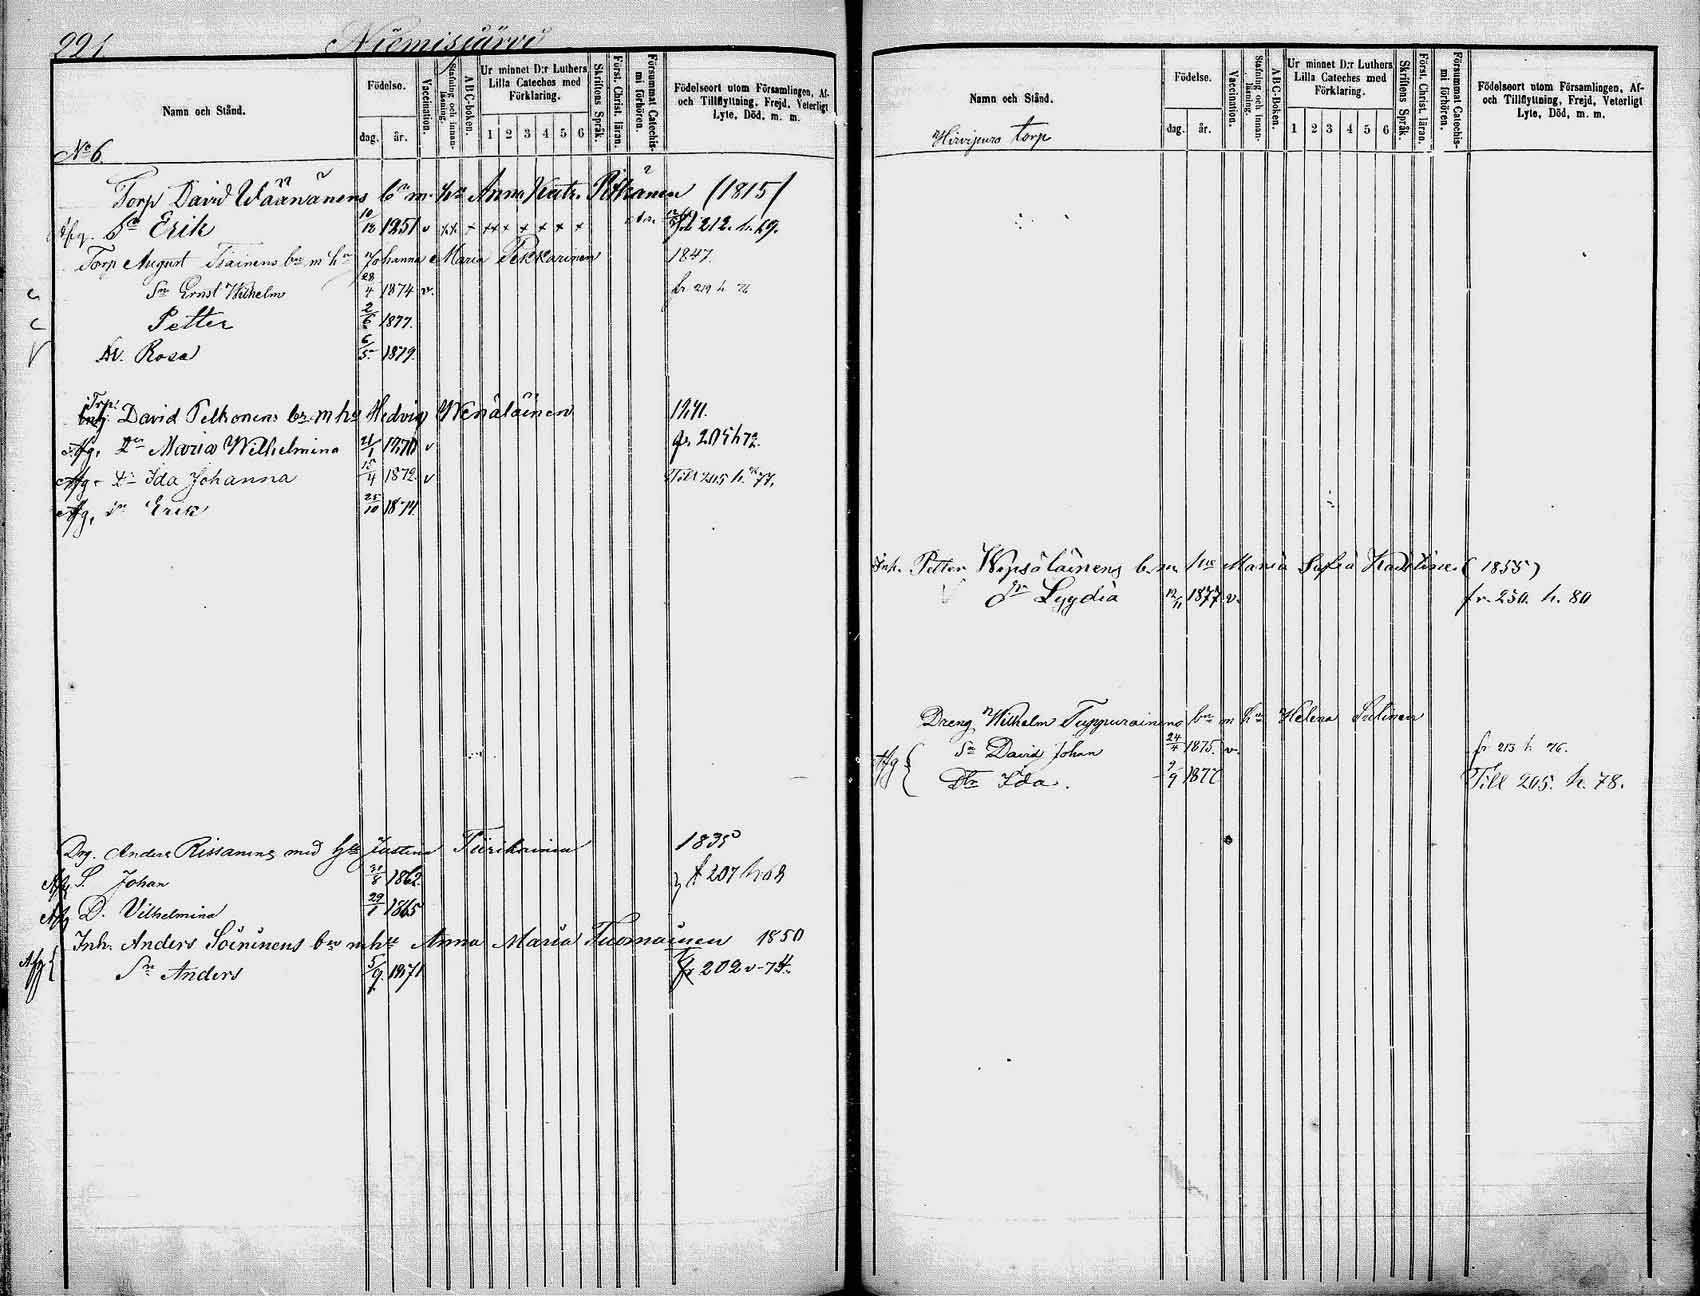 221.
Niemisjärvi
Namn och Stånd.
Födelse.
dag. år.
Vaccination.
Stafning och innanläsning.
ABC-boken.
Ur minnet D:r Luthers Lilla Cateches med Förklaring.
1 2 3 4 5 6
Skriftens Språk.
Först. Christ. läran.
Försummat Catechismi förhören.
Födelseort utom Församlingen, Af- och Tillflyttning, Frejd, Veterligt Lyte, Död, m. m.
No 6
Torp David Wäänänens bn m. hu Anna Katr. Pitkänen (1815)
Sn Erik 10/12 1851 v fr 212. h. 69.
Torp August Tsainens bn m hu Johanna Maria Pekkarinen 1847.
Sn Ernst Wilhelm 28/4 1874 v. fr 219 h 76
Petter 2/6 1877.
Dr. Rosa 6/5 1879.
Trp. David Pelkonens bn m hu Hedvig Wenäläinen 1841.
Afg. Dr Maria Wilhelmina 21/1 1870 v fr. 205 h 72.
Afg. Dr Ida Johanna 15/4 1872 v Till 205 h. 77.
Afg. Sn Erik 25/10 1874
Drg. Anders Rissanens med hu Justina Tiirikainen 1835
Afg S. Johan 31/8 1862 f 207 h 68
Afg D. Vilhelmina 29/1 1865
Inh. Anders Soininens bn m hu Anna Maria Tuomainen 1850
Afg Sn Anders 5/9 1871 fr 202 v. 74.
Namn och Stånd.
Födelse.
dag. år.
Vaccination.
Stafning och innanläsning.
ABC-Boken.
Ur minnet D:r Luthers Lilla Cateches med Förklaring.
1 2 3 4 5 6
Skriftens Språk.
Först. Christ. läran.
Försummat Catechismi förhören.
Födelseort utom Församlingen, Af- och Tillflyttning, Frejd, Veterligt Lyte, Död, m. m.
Hirvipuro torp
Inh. Petter Wepsäläinens b. m. hu Maria Sofia (1855)
Dr Lyydia 12/11 1877 v. fr. 250. h. 80
Dreng Wilhelm Tuppurainens bn m hu Helena
Sn David Johan 24/4 1875. v. fr 213 h 76.
Afg Dtr Ida. 7/9 1877 Till 205. h. 78.